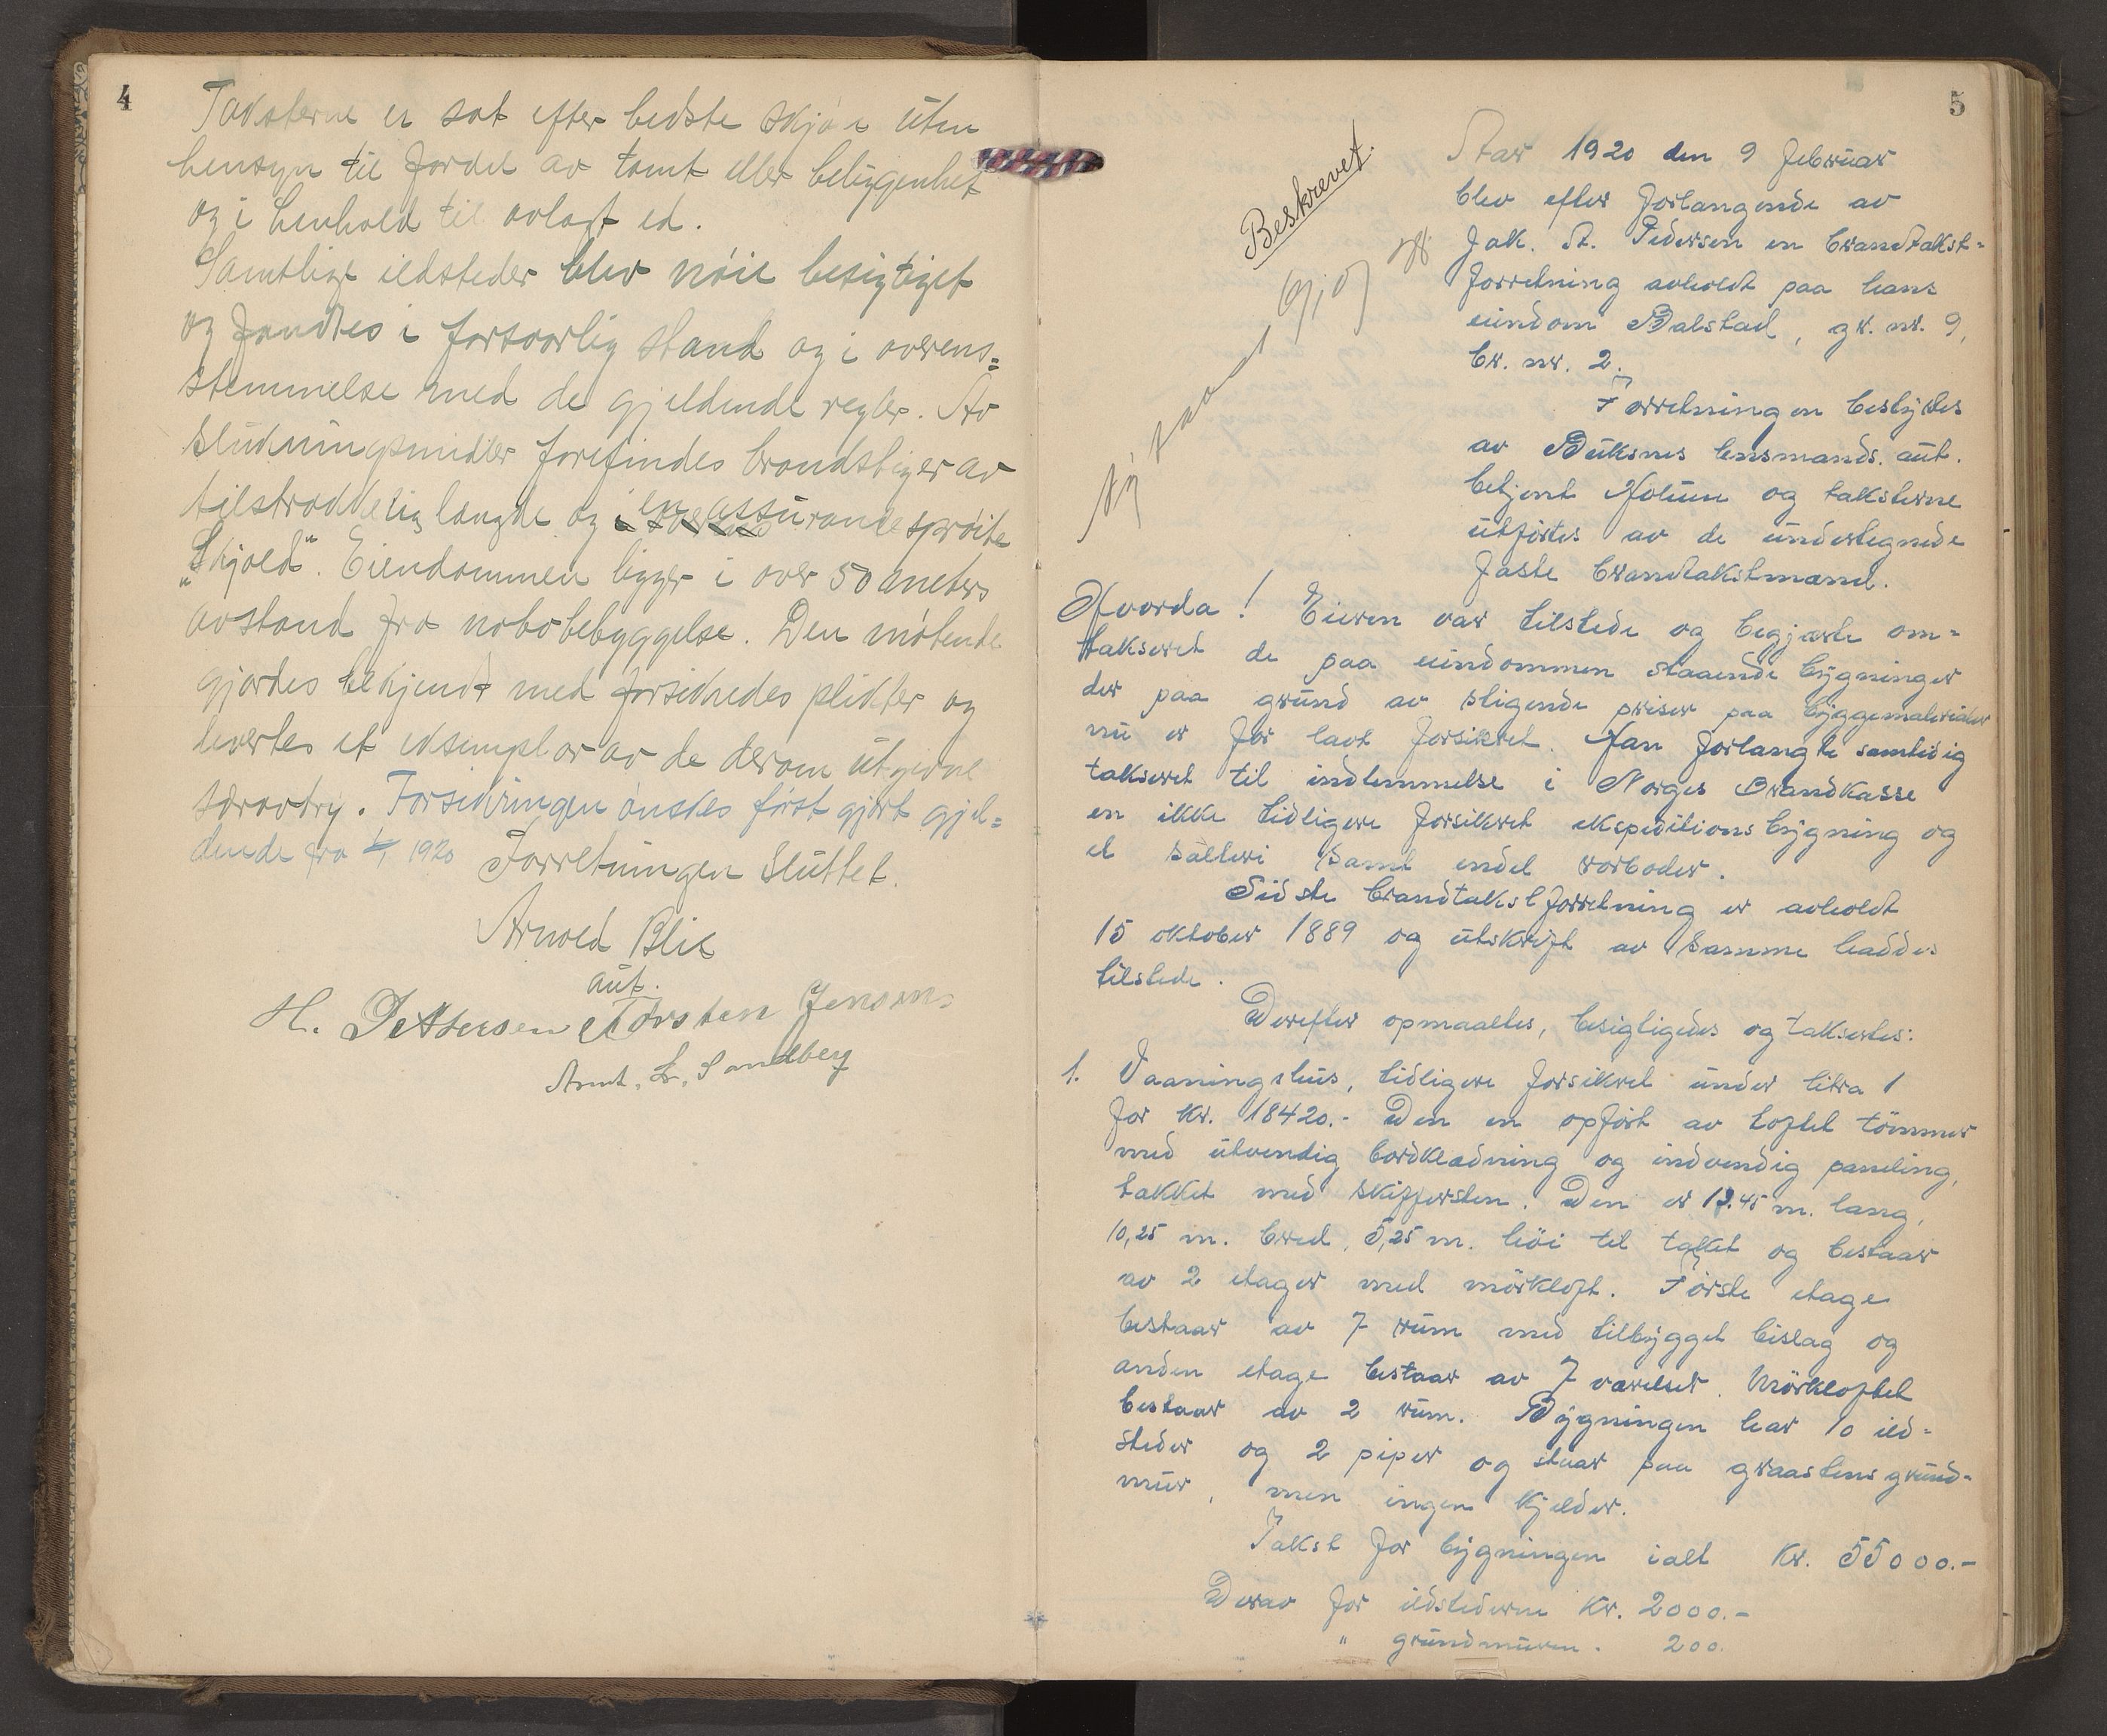 4
Taksterne er sat efter bedste skjøn uten
hensyn til fordel av tomt eller beliggenhet
og i henhold til avlagt ed.
Samtlige ildsteder blev nöie besigtiget
og fandtes i forsvarlig stand og i overens=
stemmelse med de gjeldende regler. Av
slukningsmidler forefindes brandstiger av
tilstrækkelig længde og en assurancesprøite
"Skjold". Eiendommen ligger i over 50 meters
avstand fra nabobebyggelse. Den møtende
gjordes bekjendt med forsikredes plikter og
levertes et eksemplar av de derom utgivne
særavtryk. Forsikringen ønskes först gjort gjel=
dende fra 1920
Forretningen sluttet.
Arnold Blix
aut.
H. Pettersen Torsten Jensen
Arnt. L. Sandberg
5
Beskrevet.
Aar 1920 den 9 februar
blev efter forlangende av
Jak. St. Pedersen en brandtakst=
forretning avholdt paa hans
eiendom Balstad, gr. nr. 9,
br. nr. 2.
Forretningen bestyrtes
av Buksnes lensmands. aut.
betjent Holum og taksterne
utførtes av de undertegnede
faste brandtakstmænd.
Hvorda! Eieren var tilstede og begjærte om=
takseret de paa eiendommen staaende bygninger
der paa grund av stigende priser paa byggematerialer
nu er for lavt forsikret. Han forlangte samtidig
takseret til indlemmelse i Norges Brandkasse
en ikke tidligere forsikret ekspeditionsbygning og
et salteri samt endel rorboder.
Sidste brandtakstforretning er avholdt
15 oktober 1889 og utskrift av samme haddes
tilstede.
Derefter opmaaltes, besigtigedes og taksertes:
1. Vaaningshus, tidligere forsikret under litra 1
for kr. 18420.- Den en opført av loftet tömmer
med utvendig bordklædning og indvendig paneling,
takket med skiffersten. Den er 13.45 m. lang,
10,25 m. bred, 5,25 m. höi til taket og bestaar
av 2 etager med mörkloft. Förste etage
bestaar av 7 rum med tilbygget bislag og
anden etage bestaar av 7 værelser. Mörkloftet
bestaar av 2 rum. Bygningen har 10 ild=
steder og 2 piper og staar paa graastensgrund=
mur, men ingen kjelder.
Takst for bygningen ialt kr. 55000.-
Derav for ildstederne kr. 2000.-
" grundmuren. 200.